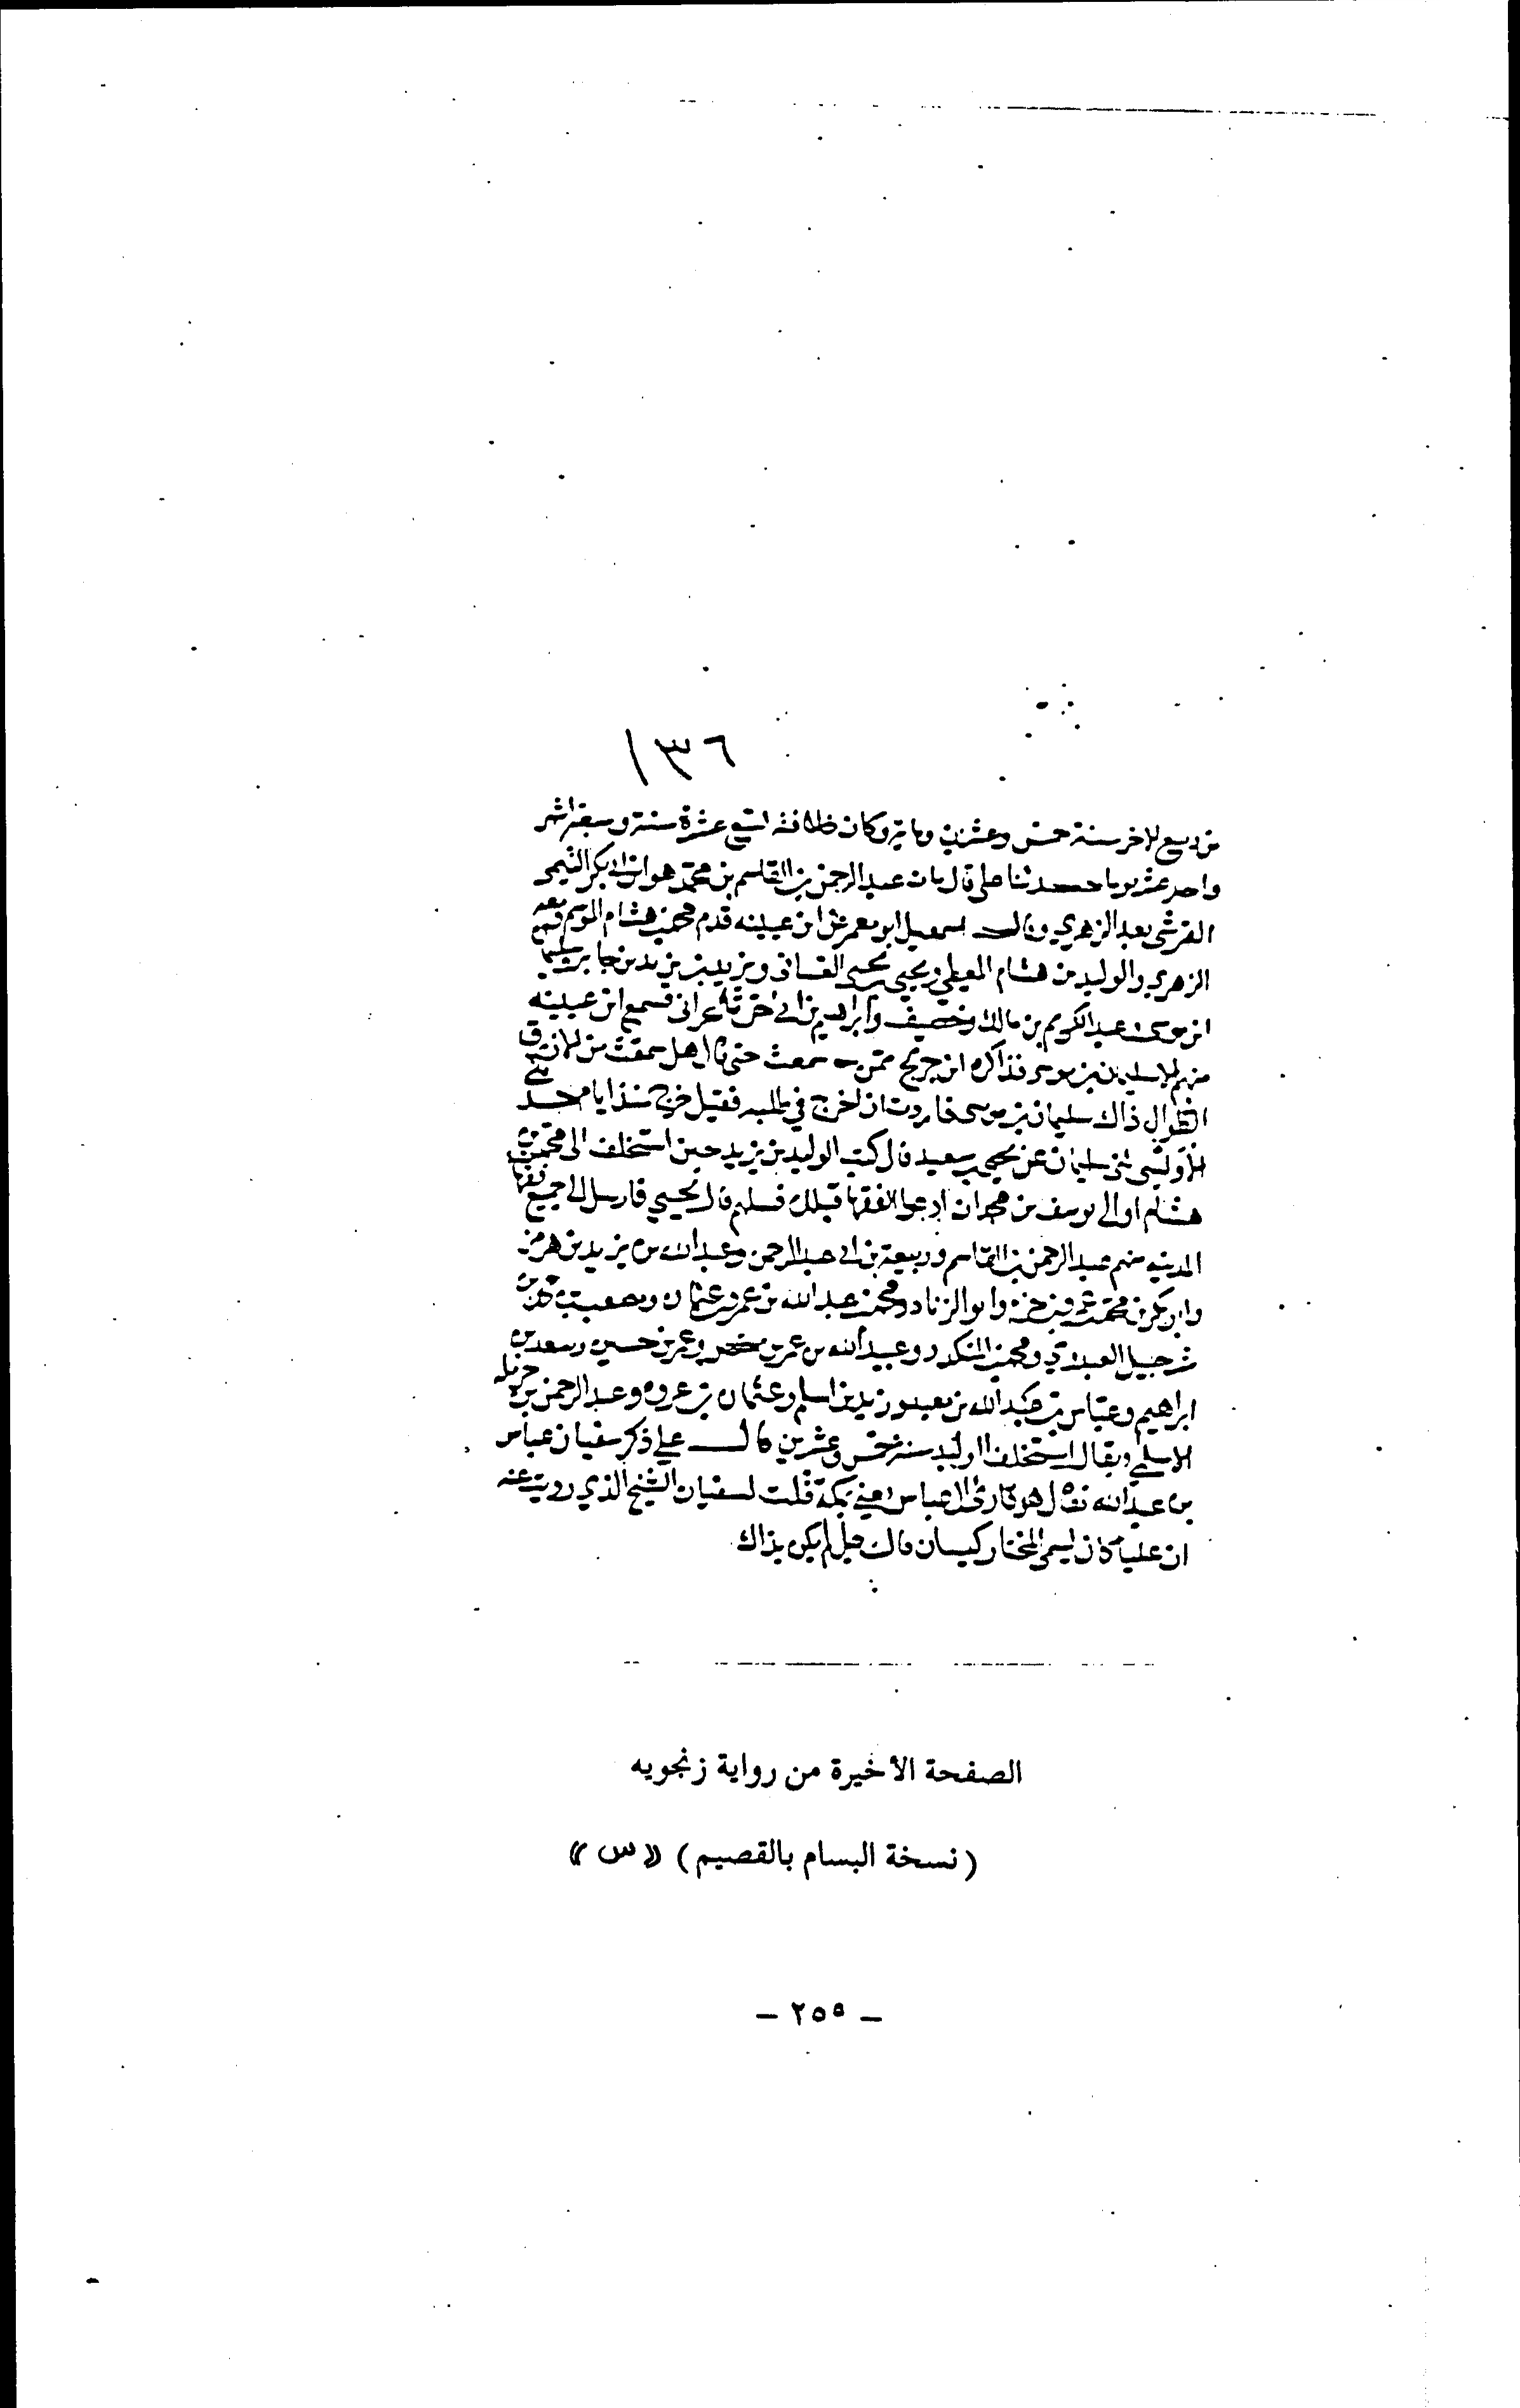 ١٣٦
من ربيع الاخر سنة خمس وعشرين وماية وكان خلافته تسع عشرة سنة وسبعة اشهر
واحد عشر يوما حدثنا علي قال مات عبد الرحمن بن القاسم بن محمد هو ابن ابي بكر التيمي
القرشي بعد الزهري وقال اسمعيل ابو معمر عن ابن عيينه قدم محمد بن هشام الموسم ومعه
الزهري والوليد بن هشام المعيطي ويحيى بن يحيى الغساني ويزيد بن يزيد بن جابر وسليمان
ابن موسى وعبد الكريم بن مالك وخصيف وابراهيم بن ابي حرة فسمع ابن عيينه
منهم الا سليمن بن موسى فذاكره ابن جريج ممن سمعت حتى قال هل سمعت من الازرق
الطوال ذاك سليمان بن موسى فاردت ان اخرج في طلبه فقيل خرج منذ ايام
الاويسي ثنى سليمان عن يحيى بن سعيد قال كتب الوليد بن يزيد حين استخلف الى محمد بن
هشام او الى يوسف بن محمد ان ادعوا الفقها قبلك فسلهم قال يحيى فارسل الى جميع فقها
المدينه منهم عبد الرحمن بن القاسم وربيعة بن ابي عبد الرحمن وعبد الله بن يزيد بن هرمز
وابو بكر بن محمد بن عمرو بن حزم وابو الزناد ومحمد بن عبد الله بن عمرو بن عثمان ومصعب بن محمد بن
شرحبيل العبدري ومحمد بن المنكدر وعبيد الله بن عمر بن حفص وعمر بن حسين وسعد بن
ابراهيم وعباس بن عبد الله بن معبد وزيد بن اسلم وعثمان بن عروه وعبد الرحمن بن حرمله
الاسلمي ويقال استخلف الوليد سنة خمس وعشرين قال علي ذكر سفيان عباس
بن عبد الله فقال هو قارئ ال عباس يعني بمكة قلت لسفيان الشيخ الذي رويت عنه
ان عليا كان يسمى المختار كيسان قال قبل لم يكن بذاك
الصفحة الأخيرة من رواية زنجويه
(نسخة البسام بالقصيم) «س»
- ٢٥٥ -